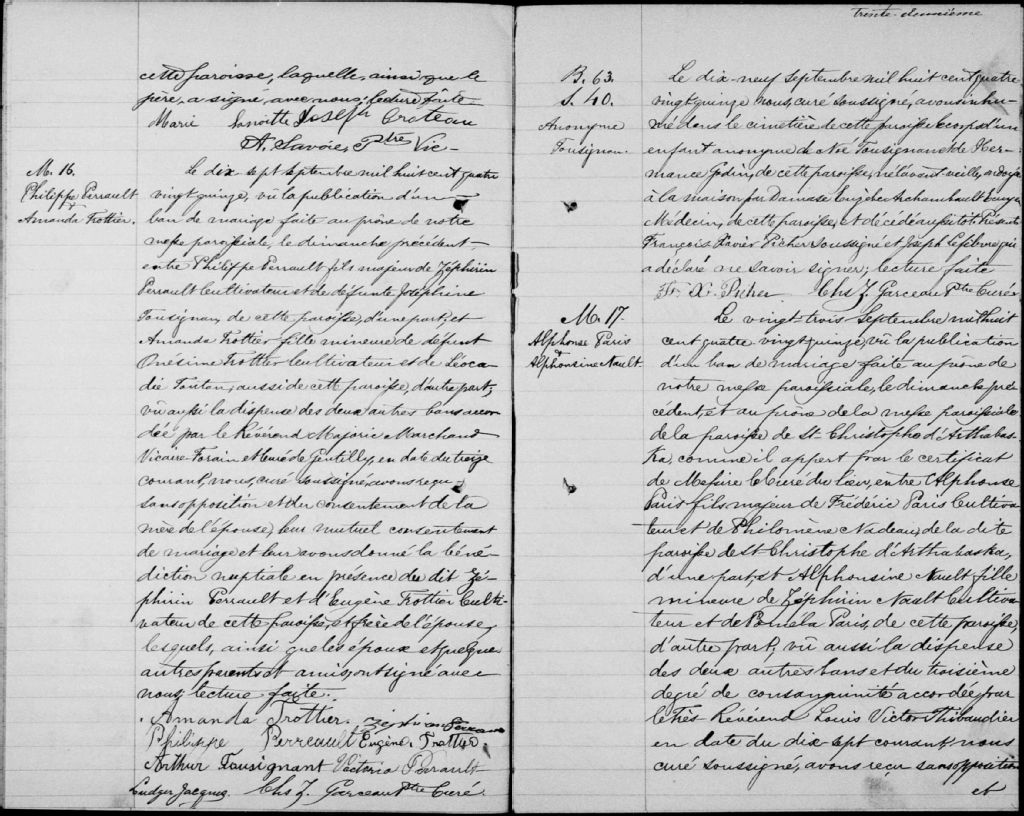 cette paroisse, laquelle, ainsi que le
père, a signé, avec nous; lecture faite
Marie Joseph Croteau
A. Savoie, Ptre Vic-
M. 16.
Philippe Perrault
&
Amanda Trottier.
Le dix sept septembre mil huit cent quatre
vingt quinze, vû la publication d'un
ban de mariage faite au prône de notre
messe paroissiale, le dimanche précédent
entre Philippe Perrault fils majeur de Zéphirin
Perrault Cultivateur et de défunte Joséphine
Tousignan, de cette paroisse, d'une part, et
Amanda Trottier fille mineure de défunt
Onésime Trottier Cultivateur et de Léoca-
die Tonton, aussi de cette paroisse, d'autre part;
vû aussi la dispense des deux autres bans accor-
dée par le Révérend Majoric Marchand
Vicaire-Forain et Curé de Gentilly, en date du treize
courant, nous, curé soussigné, avons reçu
sans opposition et du consentement de la
mère de l'épouse, leur mutuel consentement
de mariage et leur avons donné la béné-
diction nuptiale en présence du dit Zé-
phirin Perrault et d'Eugène Trottier Culti-
vateur de cette paroisse, et frère de l'épouse,
lesquels, ainsi que les époux et quelques
autres parents et amis, ont signé avec
nous, lecture faite.
Amanda Trottier. Zéphirin Perrault
Philippe Perreault Eugène Trottier
Arthur Tousignant Victoria Perrault
Ludger Jacques Chs Z. Garceau Ptre Curé.
trente-deuxième
B. 63.
S. 40.
Anonyme
Tousignan.
Le dix-neuf septembre mil huit cent quatre
vingt quinze nous, curé soussigné, avons inhu-
mé dans le cimetière de cette paroisse le corps d'un
enfant anonyme de Noé Tousignan et de Her-
mance Godin, de cette paroisse, né l'avant veille, ondoyé
à la maison par Damase Eugèbe Archambault Ecuyer
Médecin, de cette paroisse, et décédé aussitôt. Présents
François Xavier Picher soussigné et Joseph Lefebvre qui
a déclaré ne savoir signer; lecture faite
F. X. Picher Chs Z. Garceau Ptre Curé
M. 17.
Alphonse Paris
&
Alphonsine Nault.
Le vingt-trois Septembre mil huit
cent quatre vingt quinze, vû la publication
d'un ban de mariage faite au prône de
notre messe paroissiale, le dimanche pré-
cédent, et au prône de la messe paroissiale
de la paroisse de St-Christophe d'Arthabas-
ka, comme il appert par le certificat
de Messire le Curé du lieu, entre Alphonse
Paris fils majeur de Frédéric Paris Cultiva-
teur et de Philomène Nadeau, de la dite
paroisse de St-Christophe d'Arthabaska,
d'une part, et Alphonsine Nault fille
mineure de Zéphirin Nault Cultiva-
teur et de Poméla Paris, de cette paroisse,
d'autre part; vû aussi la dispense
des deux autres bans et du troisième
degré de consanguinité accordée par
le Très-Révérend Louis Victor Thibaudier
en date du dix-sept courant, nous
curé soussigné, avons reçu sans opposition
et